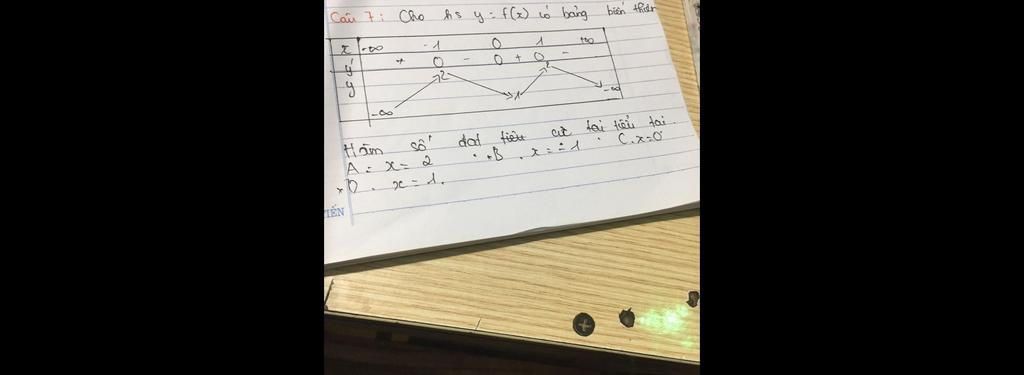 Câu 7: Cho hs y = f(x) có bảng biến thiên
x -∞ -1 0 1 +∞
y' + 0 - 0 + 0 -
y -∞ 2 1 2 -∞
Hàm số đạt tiểu cực tại tiểu tại
A = x = 2 B. x = ± 1 C. x = 0
D. x = 1.
TIẾN